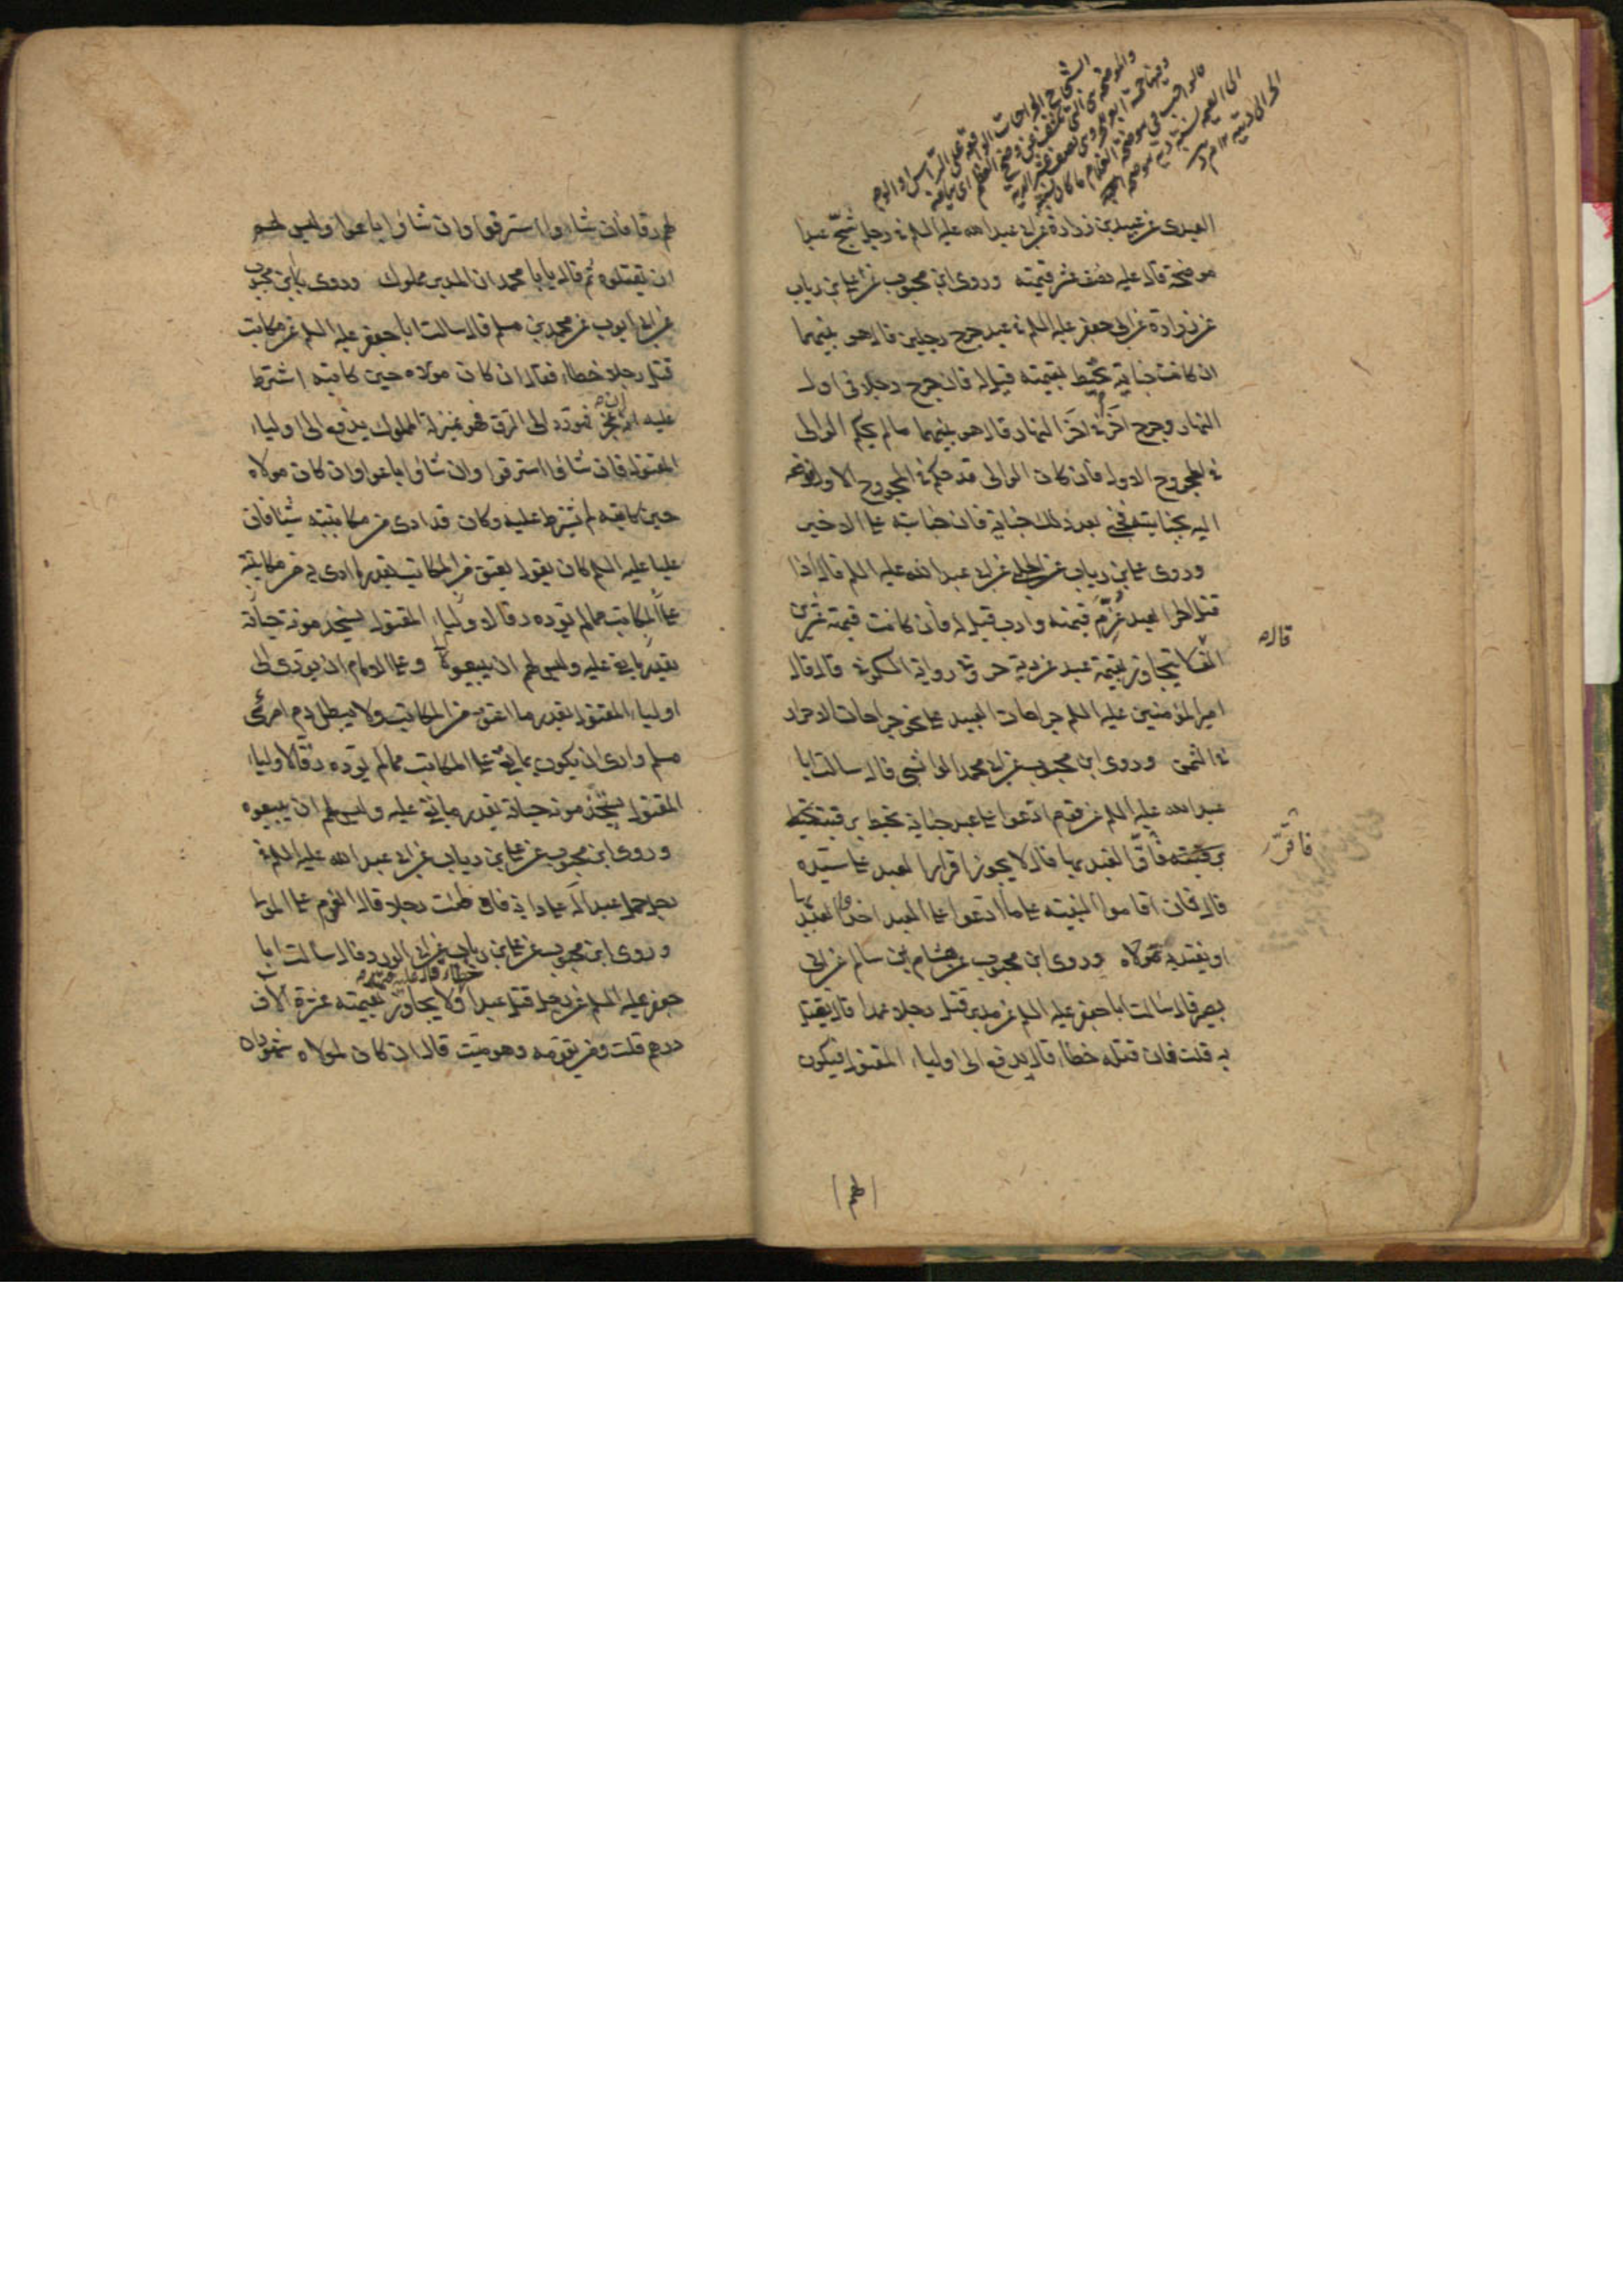 الشجاج الجراحات الواقعة على الرأس او الوجه
والموضحة هى التى تكشف عن وضح العظم اى بياضه
وفيها خمسة ابعرة وهى نصف عشر الدية
فالواجب فى موضحة الغلام ما كان نسبته
الى القيمة نسبة دية موضحة
الحر الى ديته ١٢ م د
العبدى عن عبيد بن زرارة عن ابى عبد الله عليه السلم فى رجل شجّ عبدا
موضحة قال عليه نصف عشر قيمته وروى ابن محبوب عن على بن رياب
عن زرارة عن ابى جعفر عليه السلم فى عبد جرح رجلين قال هو بينهما
ان كانت جنايته تحيط بقيمته قيل له فان جرح رجلا فى اول
النهار وجرح آخر فى آخر النهار قال هو بينهما ما لم يحكم الوالى
فى المجروح الاول فان كان الوالى قد حكم فى المجروح الاول فدفعه
اليه بجنايته فجنى بعد ذلك جناية فان جنايته على الاخير
وروى على بن رياب عن الحلبى عن ابى عبد الله عليه السلم قال اذا
قتل الحر العبد غُرّم قيمته وادب قيل له فان كانت قيمته عشرين
قال
الفا قال لا يتجاوز بقيمة عبد عن دية حر وفى رواية السكونى قال قال
امير المؤمنين عليه السلم جراحات العبيد على نحو جراحات الاحرار
فى الثمن وروى ابن محبوب عن ابى محمد الوابشى قال سالت ابا
عبد الله عليه السلم عن قوم ادعوا على عبد جناية تحيط برقبته تحيط
برقبته فاقرّ العبد بها قال لا يجوز اقرار العبد على سيّده
فاقرّ
قال فان اقاموا البينة على ما ادعوا على العبد اخذوا العبد بها
او يفتديه مولاه وروى ابن محبوب عن هشام بن سالم عن ابى
بصير قال سالت ابا جعفر عليه السلم عن مدبر قتل رجلا عمدا قال يقتل
به قلت فان قتله خطاء قال يدفع الى اولياء المقتول فيكون
لهم رقا فان شاءوا استرقوا وان شاؤا باعوا وليس لهم
ان يقتلوه ثم قال يا با محمد ان المدبر مملوك وروى ابن محبوب
عن ابى ايوب عن محمد بن مسلم قال سالت ابا جعفر عليه السلم عن مكاتب
قتل رجلا خطاء فقال ان كان مولاه حين كاتبه اشترط
عليه ان عجز فهو رد الى الرق فهو بمنزلة المملوك يدفع الى اولياء
المقتول فان شاؤا استرقوا وان شاؤا باعوا وان كان مولاه
حين كاتبه لم يشترط عليه وكان قد ادى من مكاتبته شيئا فان
عليا عليه السلم كان يقول يعتق من المكاتب بقدر ما ادى من مكاتبته
على المكاتب مما لم يؤده رقا لاولياء المقتول يستخدمونه حياته
بقدر ما بقى عليه وليس لهم ان يبيعوه وعلى الامام ان يؤدى الى
اولياء المقتول بقدر ما اعتق من المكاتب ولا يبطل دم امرئ
مسلم وارى ان يكون ما بقى على المكاتب مما لم يؤده رقا لاولياء
المقتول يستخدمونه حياته بقدر ما بقى عليه وليس لهم ان يبيعوه
وروى ابن محبوب عن على بن رياب عن ابى عبد الله عليه السلم فى
رجل حمل عبدا له على دابة فاوطئت رجلا قال الغرم على المولى
وروى ابن محبوب عن على بن رياب عن ابى الورد قال سالت ابا
جعفر عليه السلم عن رجل قتل عبدا خطاء قال عليه قيمته ولا يجاوز بقيمته عشرة آلاف
درهم قلت ومن يقومه وهو ميت قال ان كان لمولاه شهود ان